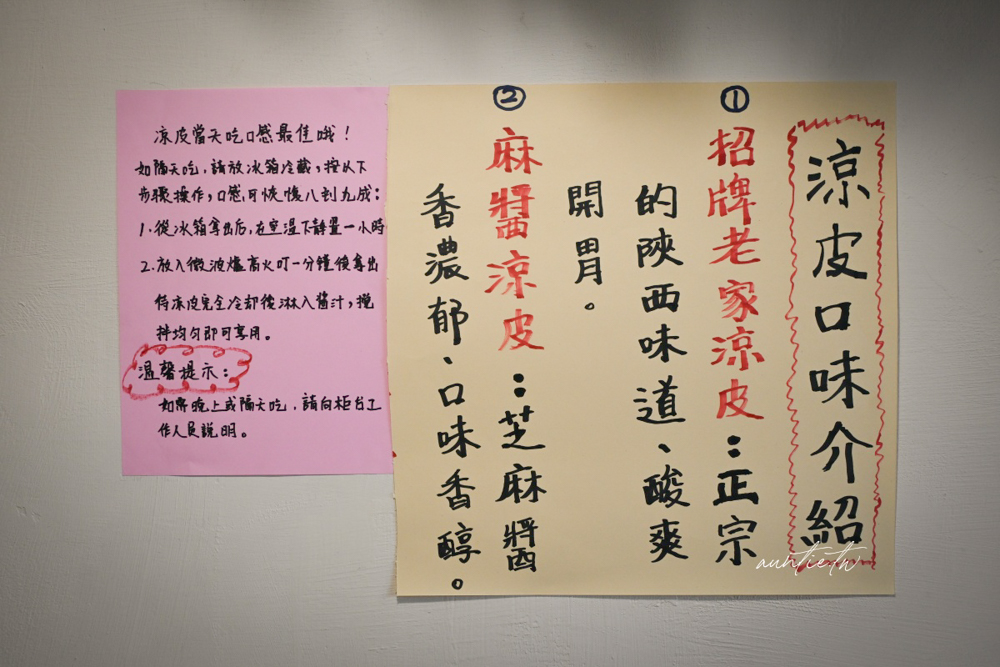 涼皮口味介紹
①招牌老家涼皮：正宗
的陝西味道、酸爽
開胃。
②麻醬涼皮：芝麻醬
香濃郁、口味香醇。
凉皮當天吃口感最佳哦！
如隔天吃，請放冰箱冷藏，按以下
步驟操作，口感可恢復八到九成：
1.從冰箱拿出后，在室温下靜置一小時
2.放入微波爐高火叮一分鐘後拿出
待凉皮完全冷却後淋入醬汁，攪
拌均匀即可享用。
温馨提示：
如需晚上或隔天吃，請向柜台工
作人員説明。
auntie.tw